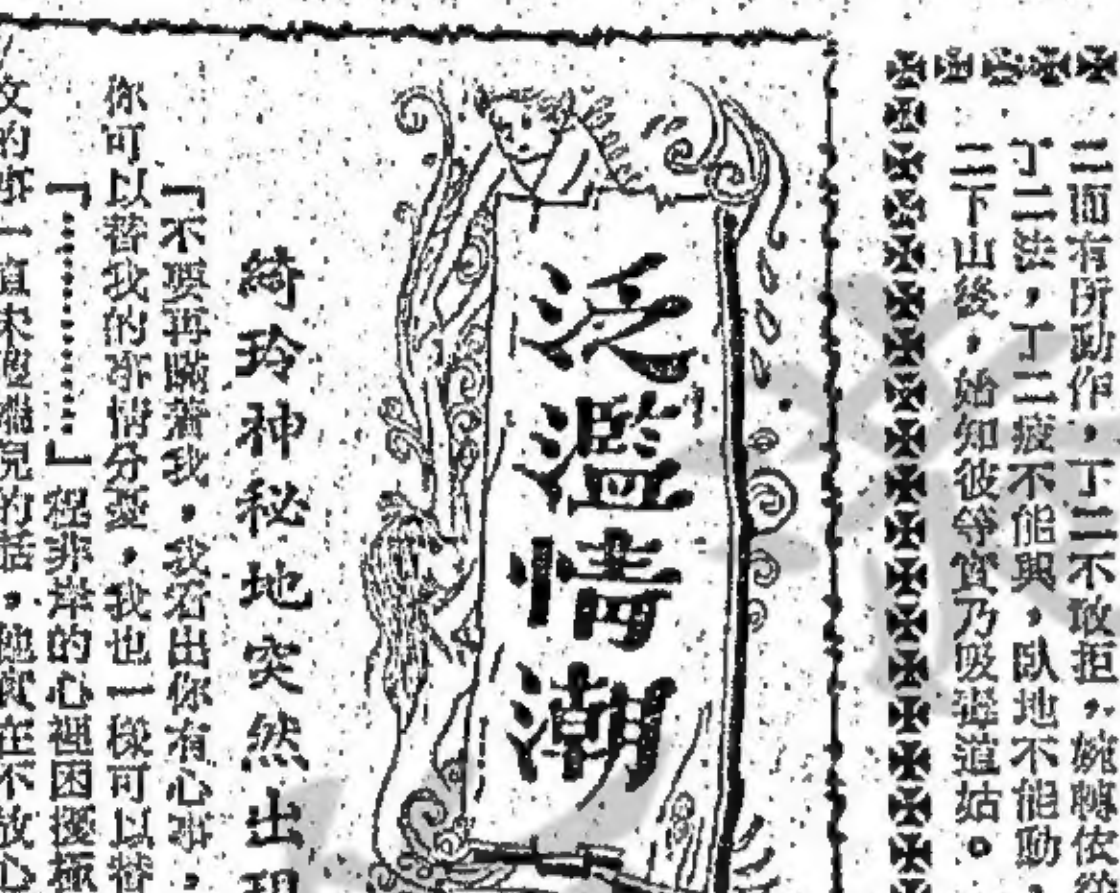 二而有所動作，丁二不敢拒，婉轉依從
丁二法，丁二疲不能興，臥地不能動
二下山後，始知彼等實乃吸陽道姑。
泛濫情潮
綺玲神秘地突然出現
「不要再瞞著我，我看出你有心事，
你可以替我的事情分憂，我也一樣可以替
「…………」程非岸的心裡困擾極
文的事一直未
的話，他實在不放心